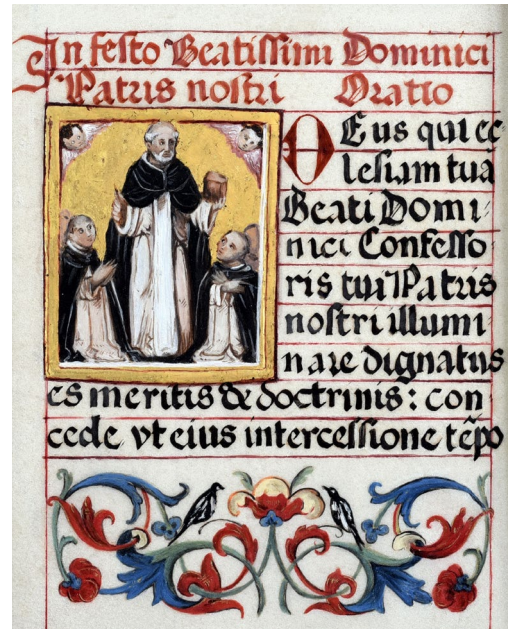 In festo Beatissimi Dominici
Patris nostri Oratio
DEus qui ec
lesiam tua
Beati Domi
nici Confesso
ris tui Patris
nostri illumi
nare dignatus
es meritis & doctrinis: con
cede vt eius intercessione tẽpo